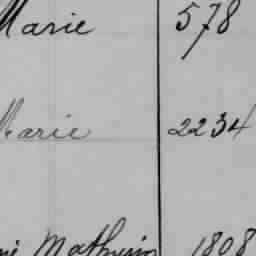 Marie 578
Marie 2234
Mathurin 1808